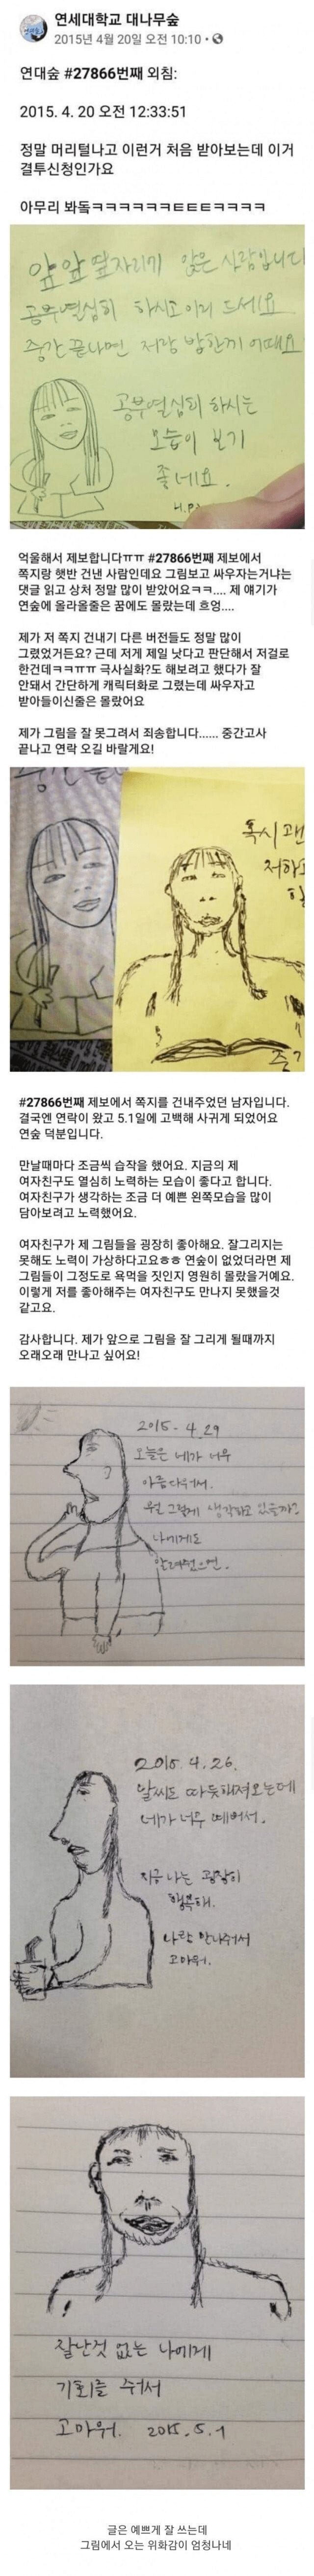 연세대학교 대나무숲
2015년 4월 20일 오전 10:10 ·
연대숲 #27866번째 외침:
2015. 4. 20 오전 12:33:51
정말 머리털나고 이런거 처음 받아보는데 이거
결투신청인가요
아무리 봐돜ㅋㅋㅋㅋㅋㅋㅌㅌㅌㅌㅋㅋㅋㅋ
앞앞 옆자리에 앉은 사람입니다
공부열심히 하시고 이거 드세요
중간 끝나면 저랑 밥한끼 어때요
공부열심히 하시는
모습이 보기
좋네요.
억울해서 제보합니다ㅠㅠ #27866번째 제보에서
쪽지랑 햇반 건낸 사람인데요 그림보고 싸우자는거냐는
댓글 읽고 상처 정말 많이 받았어요ㅋㅋ.... 제 얘기가
연숲에 올라올줄은 꿈에도 몰랐는데 흐엉....
제가 저 쪽지 건내기 다른 버전들도 정말 많이
그렸었거든요? 근데 저게 제일 낫다고 판단해서 저걸로
한건데ㅋㅋㅠㅠ 극사실화?도 해보려고 했다가 잘
안돼서 간단하게 캐릭터화로 그렸는데 싸우자고
받아들이신줄은 몰랐어요
제가 그림을 잘 못그려서 죄송합니다...... 중간고사
끝나고 연락 오길 바랄게요!
혹시 괜
저하고
#27866번째 제보에서 쪽지를 건내주었던 남자입니다.
결국엔 연락이 왔고 5.1일에 고백해 사귀게 되었어요
연숲 덕분입니다.
만날때마다 조금씩 습작을 했어요. 지금의 제
여자친구도 열심히 노력하는 모습이 좋다고 합니다.
여자친구가 생각하는 조금 더 예쁜 왼쪽모습을 많이
담아보려고 노력했어요.
여자친구가 제 그림들을 굉장히 좋아해요. 잘그리지는
못해도 노력이 가상하다고요ㅎㅎ 연숲이 없었더라면 제
그림들이 그정도로 욕먹을 짓인지 영원히 몰랐을거예요.
이렇게 저를 좋아해주는 여자친구도 만나지 못했을것
같고요.
감사합니다. 제가 앞으로 그림을 잘 그리게 될때까지
오래오래 만나고 싶어요!
2015. 4. 29
오늘은 네가 너무
아름다워서.
뭘 그렇게 생각하고 있을까?
나에게도
알려줬으면.
2015. 4. 26.
날씨도 따듯해져오는데
네가 너무 예뻐서.
지금 나는 굉장히
행복해.
나랑 만나줘서
고마워.
잘난것 없는 나에게
기회를 줘서
고마워. 2015. 5. 1
글은 예쁘게 잘 쓰는데
그림에서 오는 위화감이 엄청나네